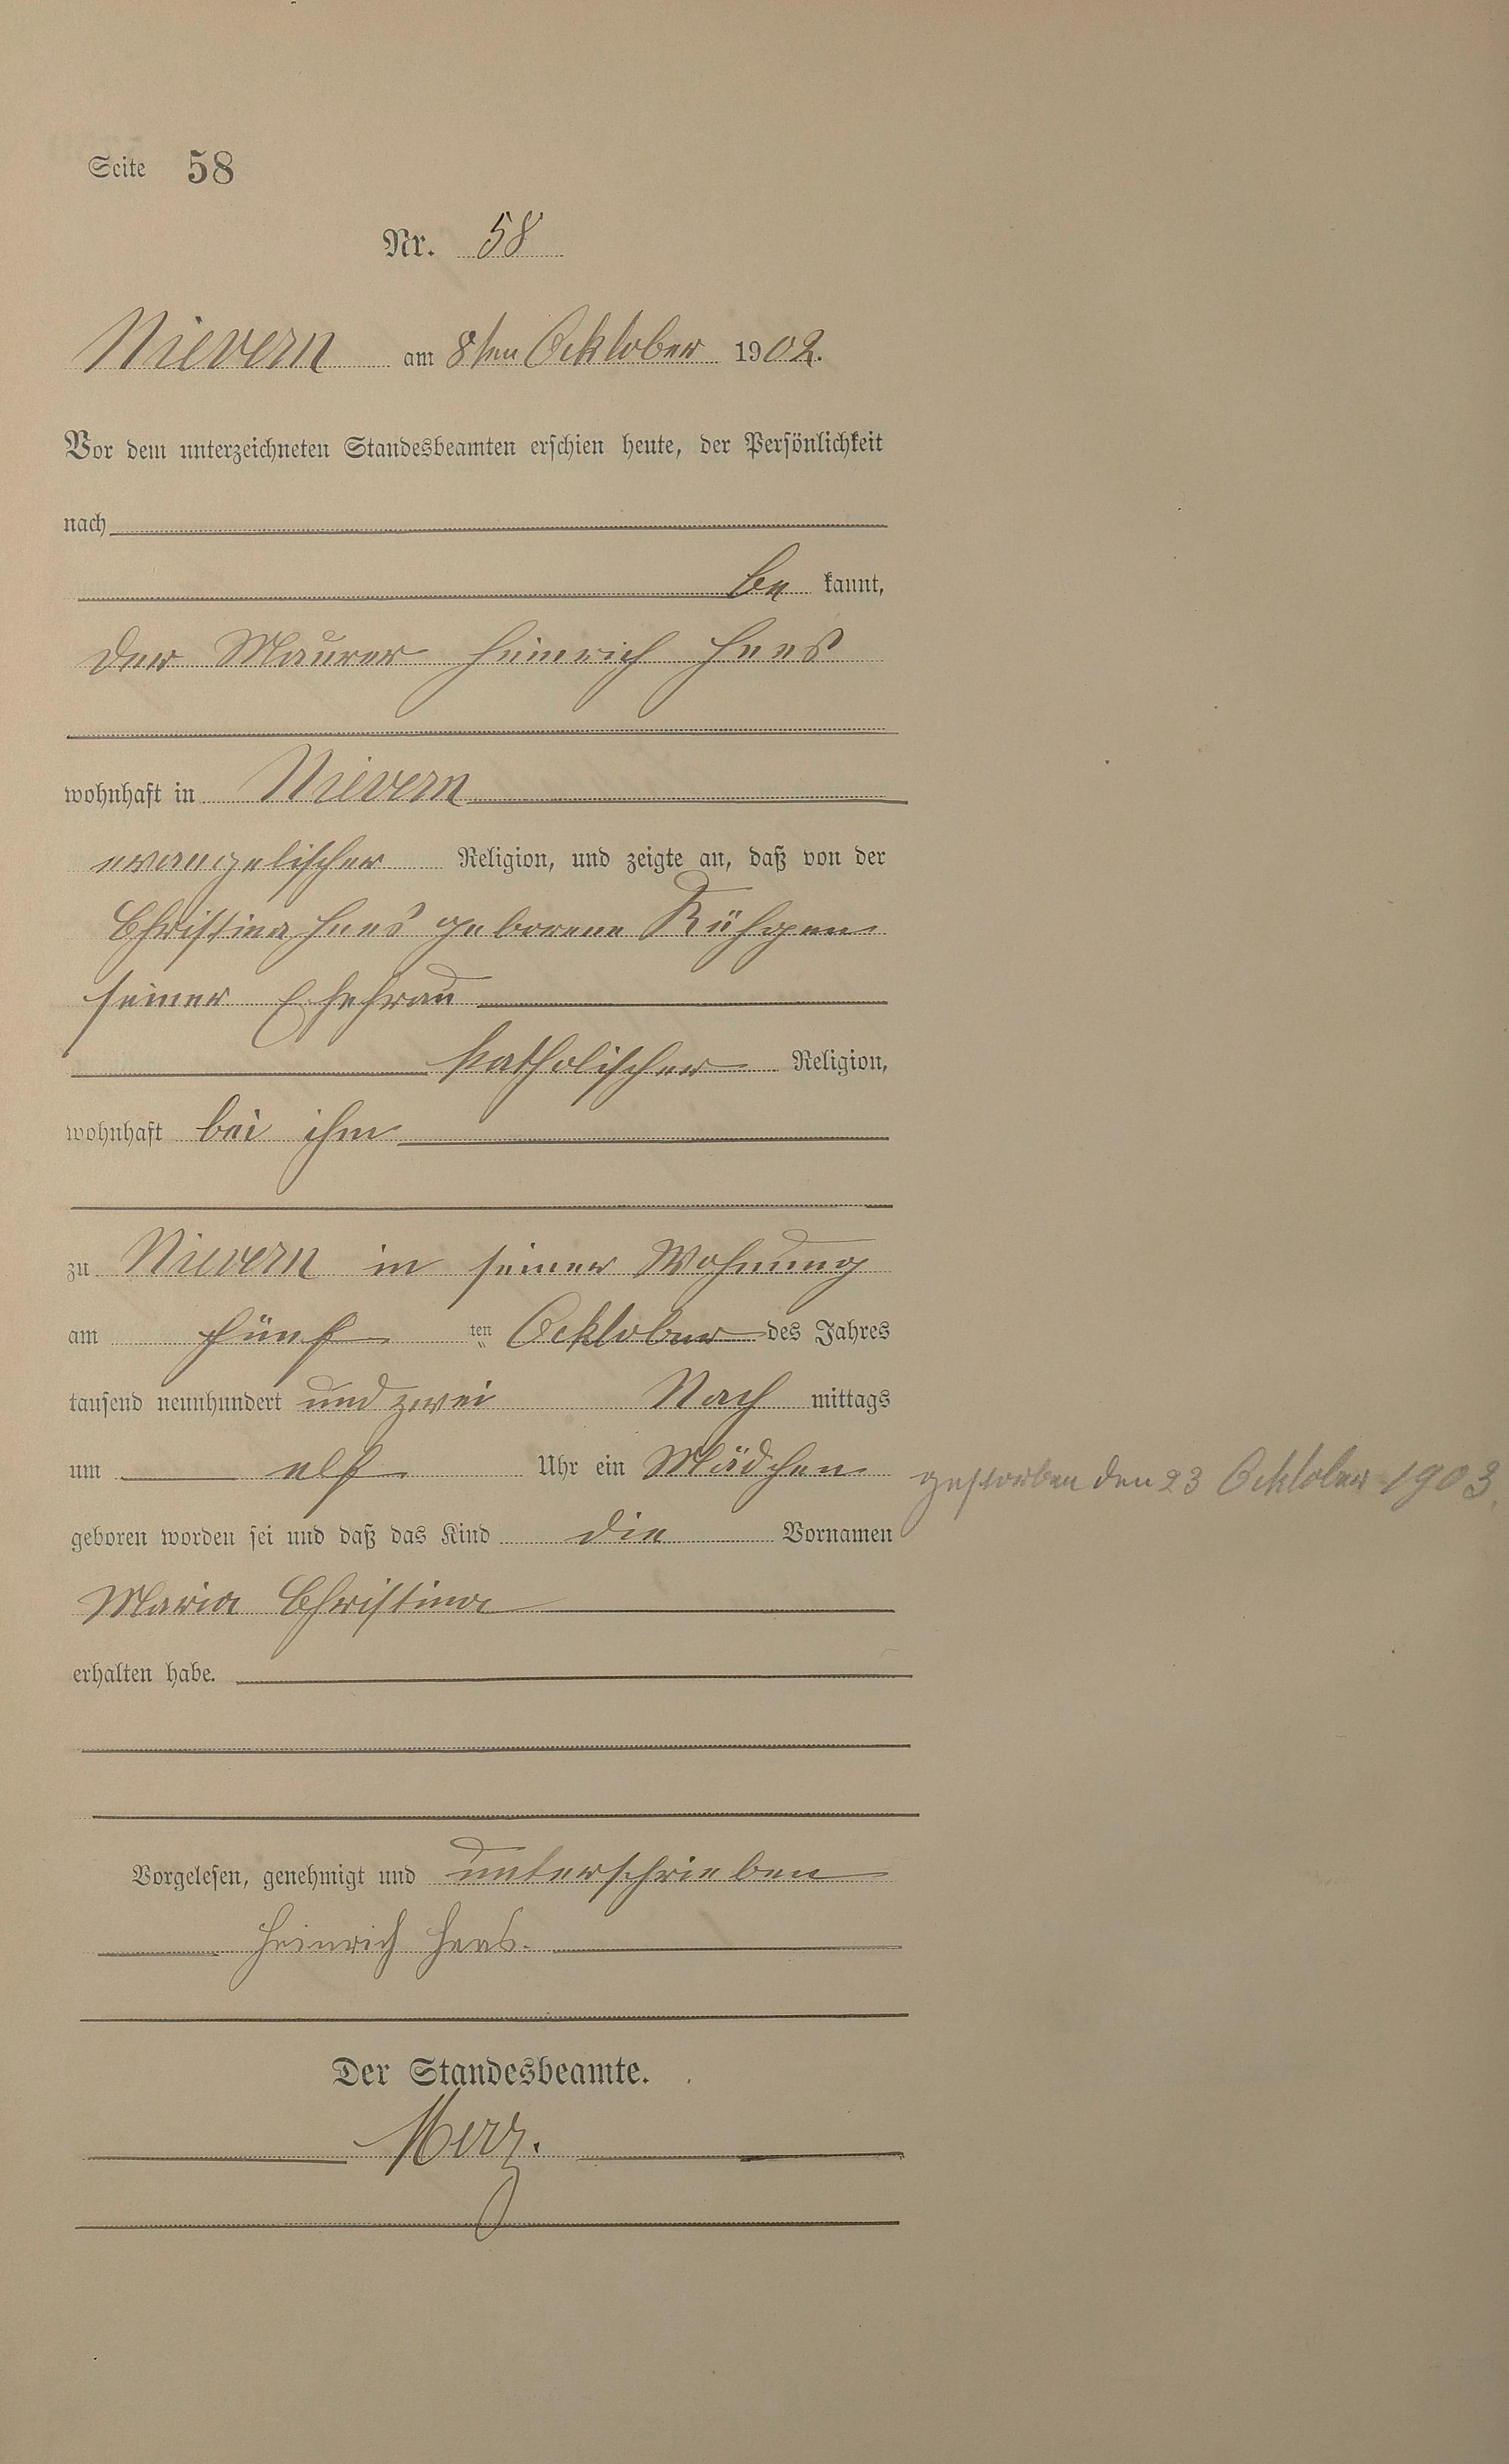 Seite 58
Nr. 58
Nievern am 8ten Ocktober 1902.
Vor dem unterzeichneten Standesbeamten erschien heute, der Persönlichkeit
nach
be kannt,
der Maurer Heinrich Haas
wohnhaft in Nievern
evangelischer Religion, und zeigte an, daß von der
Christina Haas geborene
seiner Ehefrau
katholischer Religion,
wohnhaft bei ihm
zu Nievern in seiner Wohnung
am fünf ten Ocktober des Jahres
tausend neunhundert und zwei Nach mittags
um elf Uhr ein Mädchen
gestorben den 23 Ocktober 1903.
geboren worden sei und daß das Kind die Vornamen
Maria Christina
erhalten habe.
Vorgelesen, genehmigt und unterschrieben
Heinrich Haas.
Der Standesbeamte.
Merz.